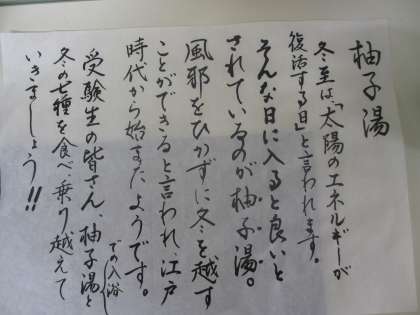 柚子湯
冬至は、「太陽のエネルギーが
復活する日」と言われます。
そんな日に入ると良いと
されているのが柚子湯。
風邪をひかずに冬を越す
ことができると言われ、江戸
時代から始またようです。
受験生の皆さん、柚子湯と
での入浴
冬の七種を食べ乗り越えて
いきましょう!!